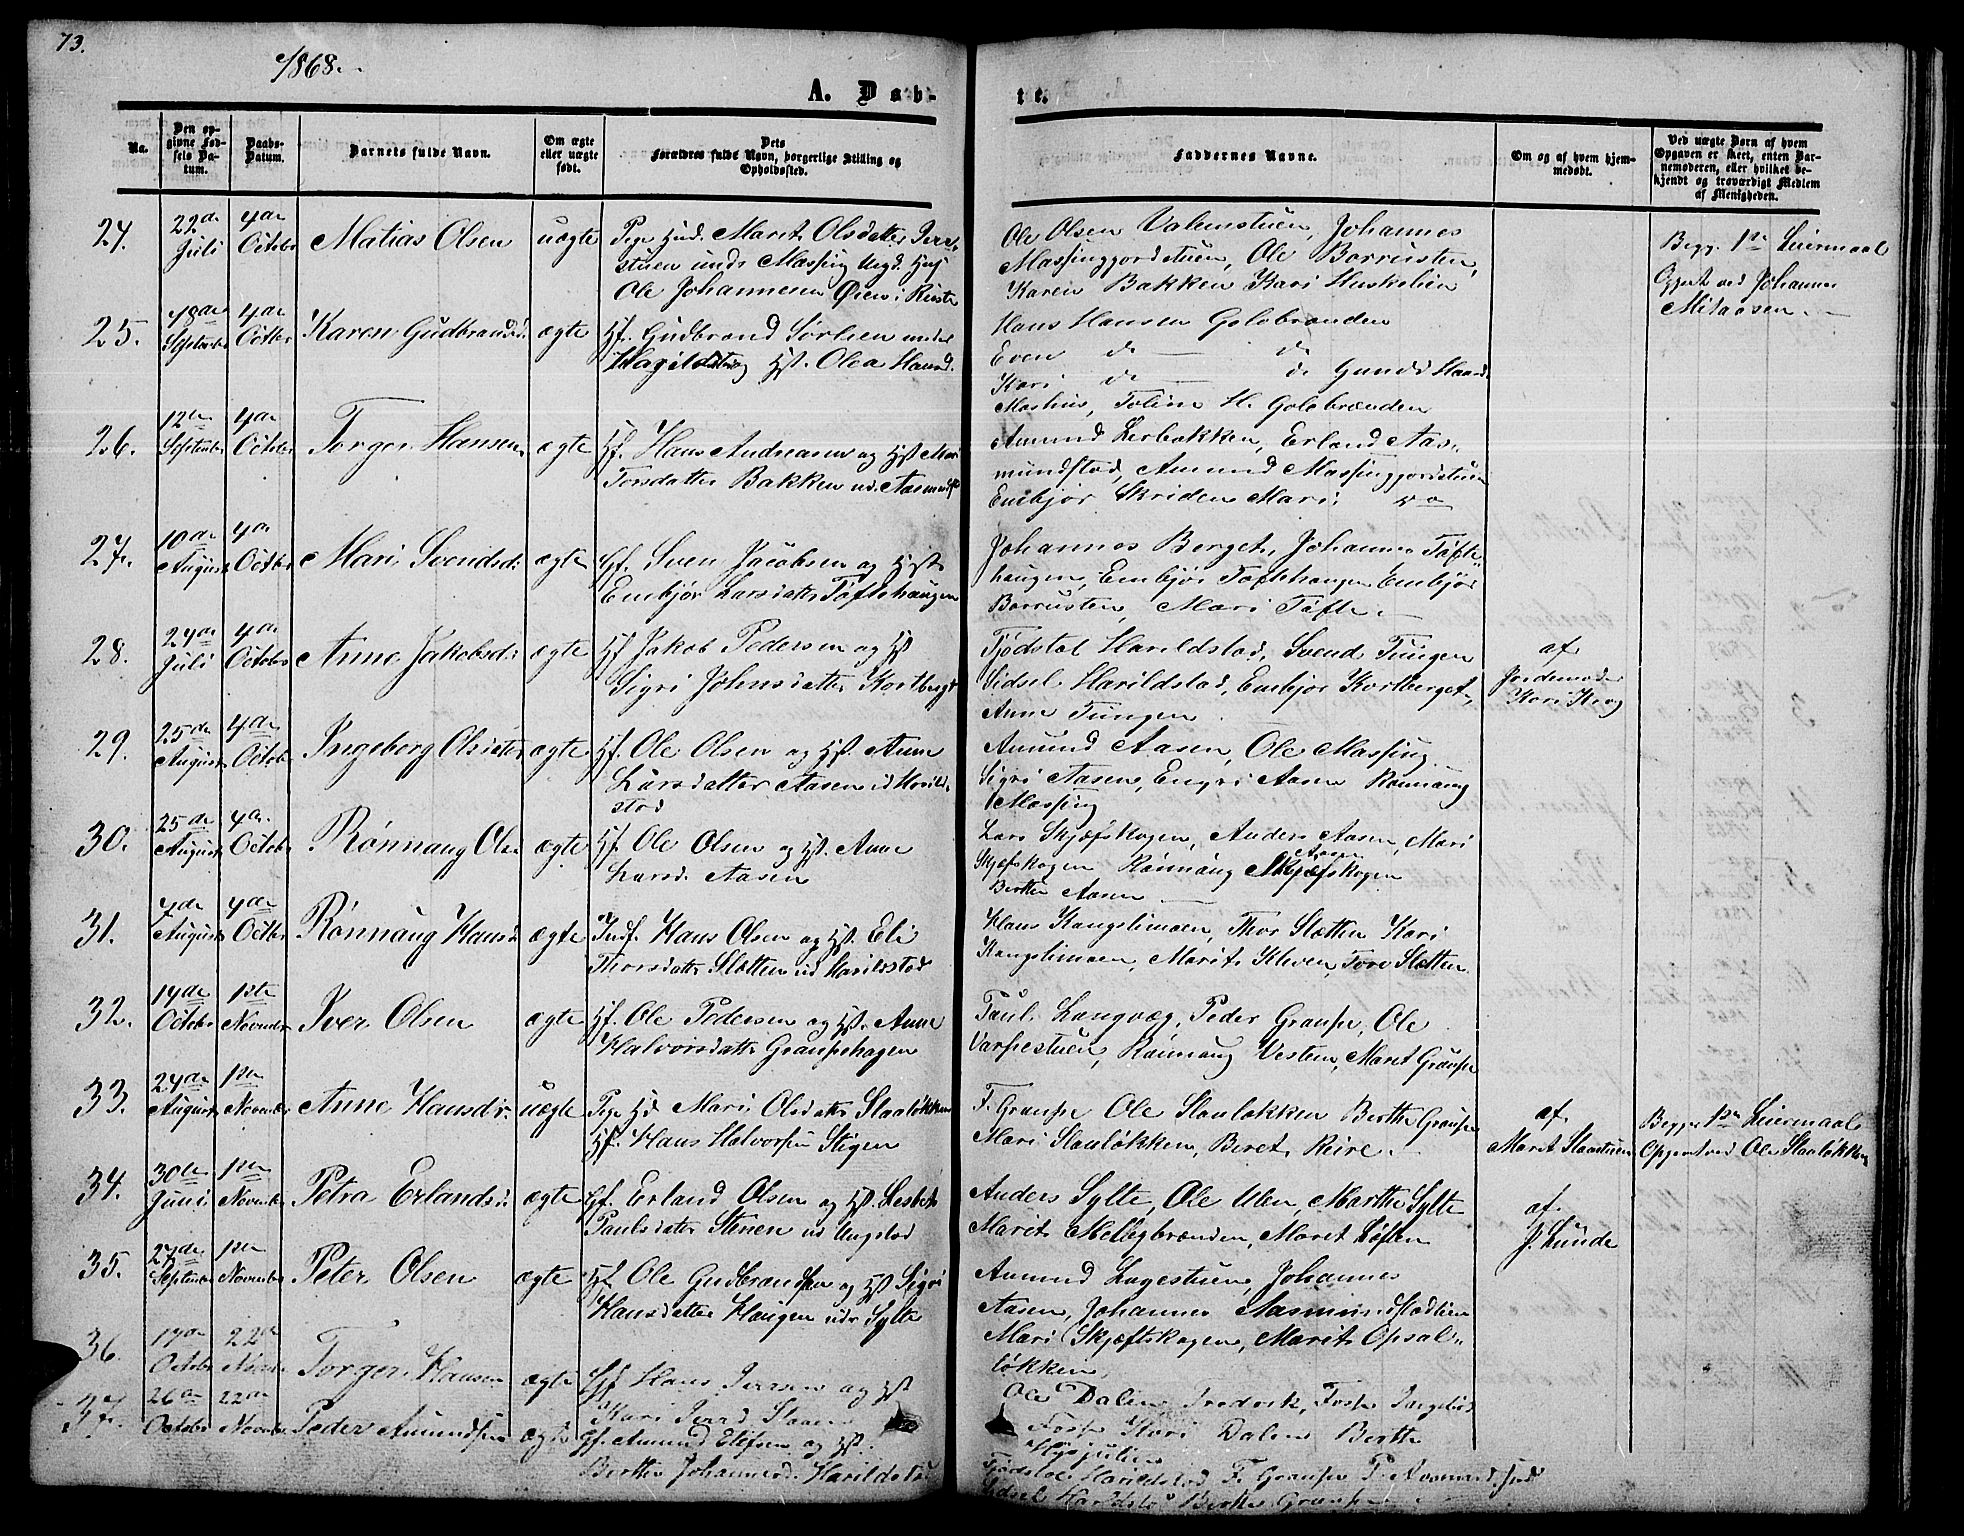 73.
1868.
A. Døb-
te.
No.
Den op-
givne Fød-
sels Da-
tum.
Daabs-
Datum.
Barnets fulde Navn.
Om ægte
eller uægte
født.
Dets
Forældres fulde Navn, borgerlige Stilling og
Opholdssted.
Faddernes Navne.
Om og af hvem hjem-
medøbt.
Ved uægte Børn af hvem
Opgaven er skeet, enten Bar-
nemoderen, eller hvilket be-
kjendt og troværdigt Medlem
af Menigheden.
24.
22de
Juli
4de
Octobr
Matias Olsen
uægte
Pige Marit Olsdatter
stuen under Massing Ungd.
Ole Johannesen Øien i
Ole Olsen Valenstuen, Johannes
Massinggjordstuen, Ole Borrusten,
Karen Bakken Kari Huskelien
Begg. 1ste Leiermaal
Opgivt ved Johannes
25.
18de
Septembr
4de
Octbr
Karen Gudbrandsd.
ægte
Hf. Gudbrand Sørlien under
Harildstad og Hst. Olea Hansd.
Hans Hansen Golobranden
Even do — do
Kari do — do
Moshus, H. Golobrænden
26.
12te
September
4de
Octobr
Torger Hansen
ægte
Hf. Hans Andreasen og Hst Mari
Torsdatter Bakken
Amund Lerbakken, Erland Aas-
mundstad, Amund Massinggjordstuen
Embjør Skriden Mari do
27.
10de
August
4de
Octbr
Mari Svendsd.
ægte
Gf. Sven Jacobsen og Hst.
Embjør Larsdatter Tøftehaugen
Johannes Berget, Johannes Tøfte-
haugen, Embjør Tøftehaugen Embjør
Borrusten, Mari Tøfte.
28.
24de
Juli
4de
Octobr
Anne Jakobsd.
ægte
Hf Jakob Pedersen og Hst
Sigri Johnsdatter Kortberget
Fjødstol Harildstad, Svend Tungen
Sidsel Harildstad, Embjør Kortberget,
Anne Tungen
af
Jordemoder
Kari Krog
29.
25de
August
4de
Octobr
Ingeborg Olsdatter
ægte
Hf. Ole Olsen og Hst. Anne
Larsdatter Aasen ud Harild-
stad
Amund Aasen, Ole Massing
Sigri Aasen, Engri Aasen Rønnaug
Massing
30.
25de
August
4de
Octobr
Rønnaug Olsd.
ægte
Hf Ole Olsen og Hst. Anne
Larsd. Aasen
Lars Skjæfskogen, Anders Aasen, Mari
Skjæfskogen Rønnaug Aasen
Berthe Aasen
31.
August
4de
Octbr
Rønnaug Hansd.
ægte
Hans Olsen og Hst. Eli
Thorsdatter Sletten ud Harildstad
Hans Kongslimoen, Thor Sletten Kari
Kongslimoen, Marit Kleven Tore Sletten
32.
14de
Octobr
1ste
November
Iver Olsen
ægte
Hf. Ole Pedersen og Hst. Anne
Halvorsdatter Graupehagen
Paul Langvæg, Peder Graupe, Ole
Varpestuen, Rønnaug Vesten, Marit Graupe
33.
24de
August
1ste
November
Anne Hansdr.
uægte
Pige Mari Olsdatter Slaaløkken
Hf. Hans Halvorsen Stigen
F. Graupe Ole Slaaløkken Berthe Graupe
Mari Slaaløkken, Beret
af
Maret Slaastuen
Begge 1ste Leiermaal
Opgivet ved Ole Slaaløkken
34.
30te
Juni
1ste
November
Petra Erlandsd.
ægte
Gf. Erland Olsen og Hst. Lisbet
Paulsdatter Stenen
Anders Sylte, Ole Ulen, Marthe Sylte
Marit Melbybrænden, Maret Løften
af
J. Lunde
35.
27de
September
1ste
November
Peter Olsen
ægte
Hf. Ole Gudbrandsen og Hst Sigri
Hansdatter Haugen Sylte
Amund Lagestuen, Johannes
Aasen, Johannes Aasmundstadlien
Mari Skjæftskogen, Marit Opsal-
løkken,
36.
17de
Octobr
22de
Torger Hansen
ægte
Gf Hans Iversen og Hst
Kari Slaaen
Ole Dalen Fredrik Fosse Ingebor
Fosse Kari Dalen Berthe
37.
26de
October
22de
Novembr
Peder Amundsen
ægte
Gf. Amund Elefsen og Hst.
Berthe Johannesd. Harildstad
Fjødstol Harildstad F. Graupe
Sidsel Harildstad Berthe Graupe